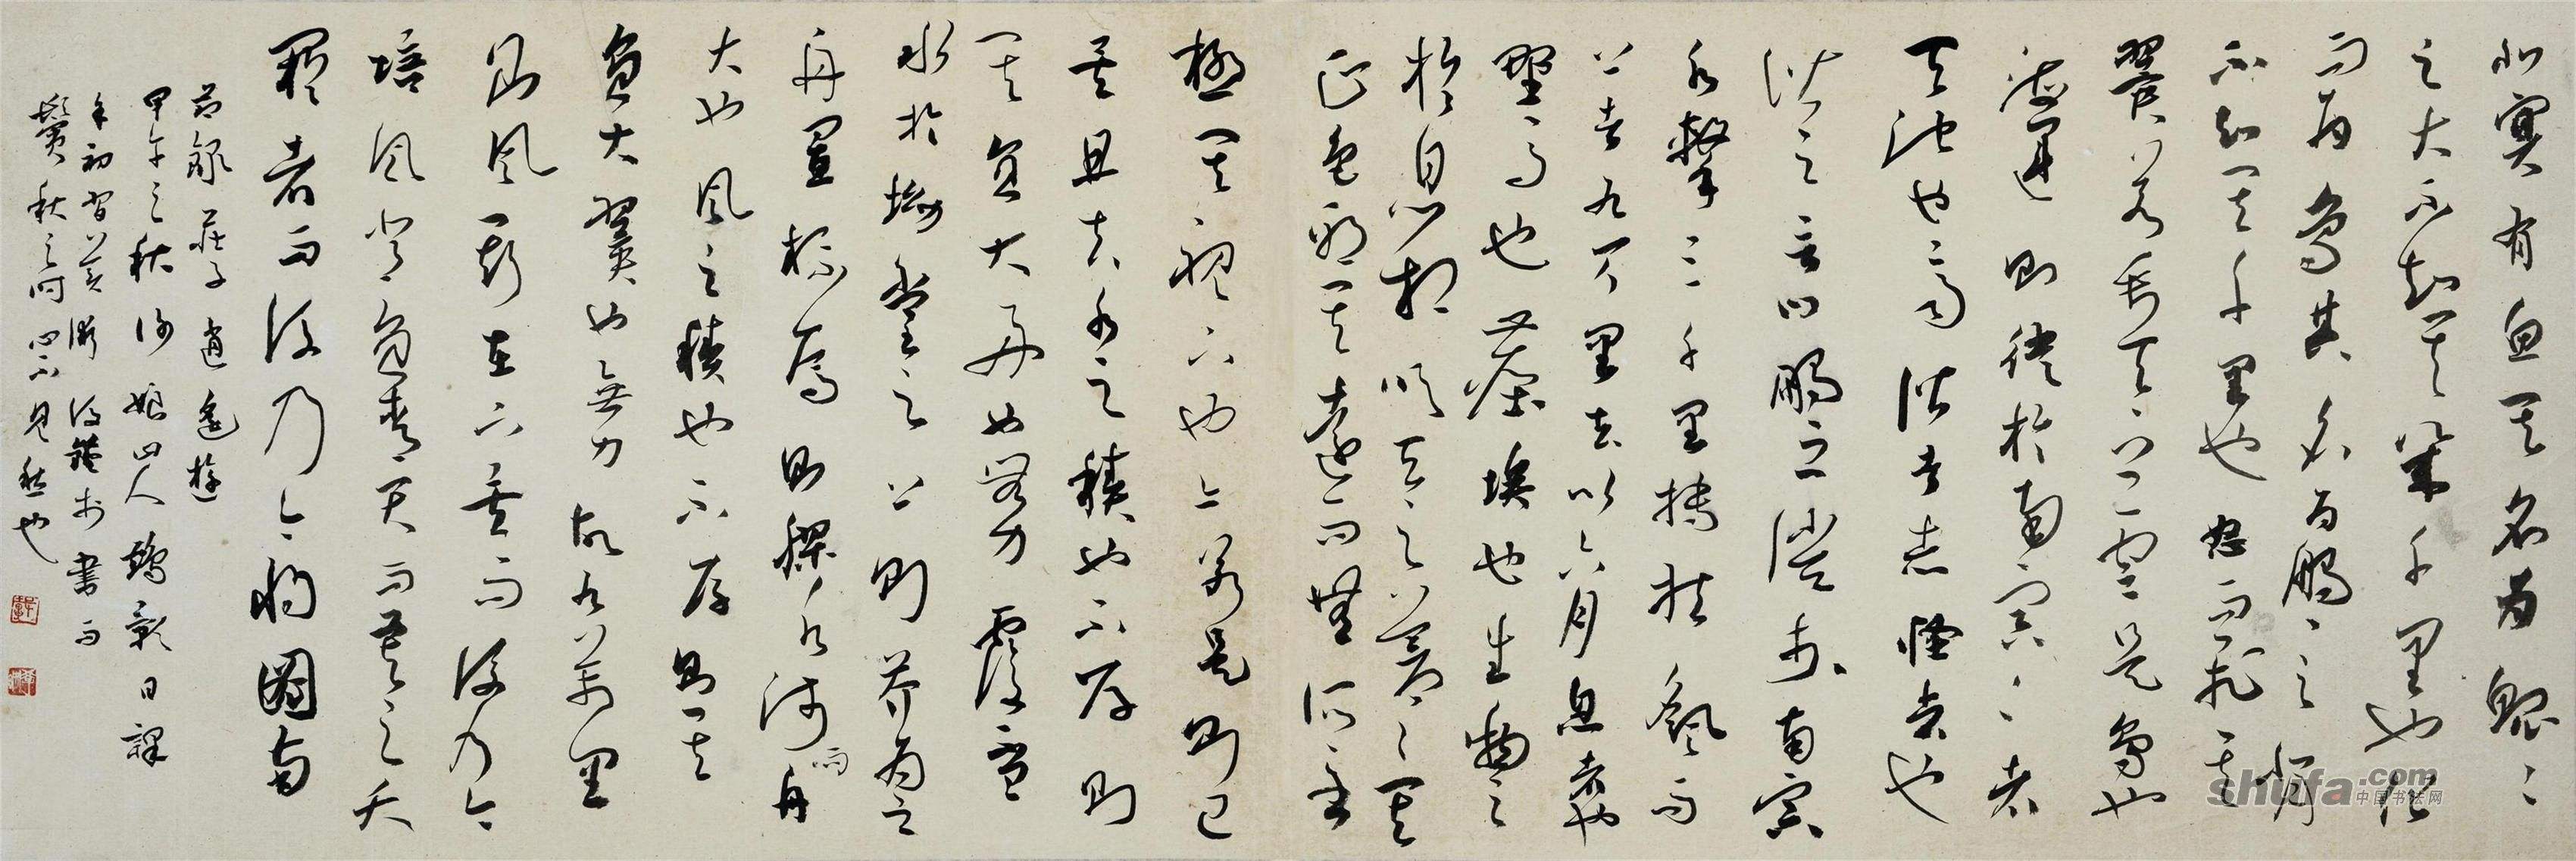 北冥有魚其名為鯤〻
之大不知其幾千里也化
而為鳥其名為鵬〻之背
不知其千里也怒而飛其
翼若垂天之雲是鳥也
海運則徙於南冥〻者
天池也齊諧者志怪者也
諧之言曰鵬之徙於南冥
水擊三千里摶扶搖而
上者九万里去以六月息者也
野馬也塵埃也生物之
於息相吹天之蒼〻其
正色邪其遠而無所至
極其視下也亦若是則已
矣且夫水之積也不厚則
其負大舟也無力覆杯
水於坳堂之上則芥為之
舟置杯焉則膠水淺而舟
大也風之積也不厚則其
負大翼也無力故九萬里
則風斯在下矣而後乃今
培風背負青天而莫之夭
閼者而後乃今將圖南
節錄莊子逍遙遊
甲午之秋 山人 日課
年初習 書而
鬢秋之 也
shufa.com
中国书法网